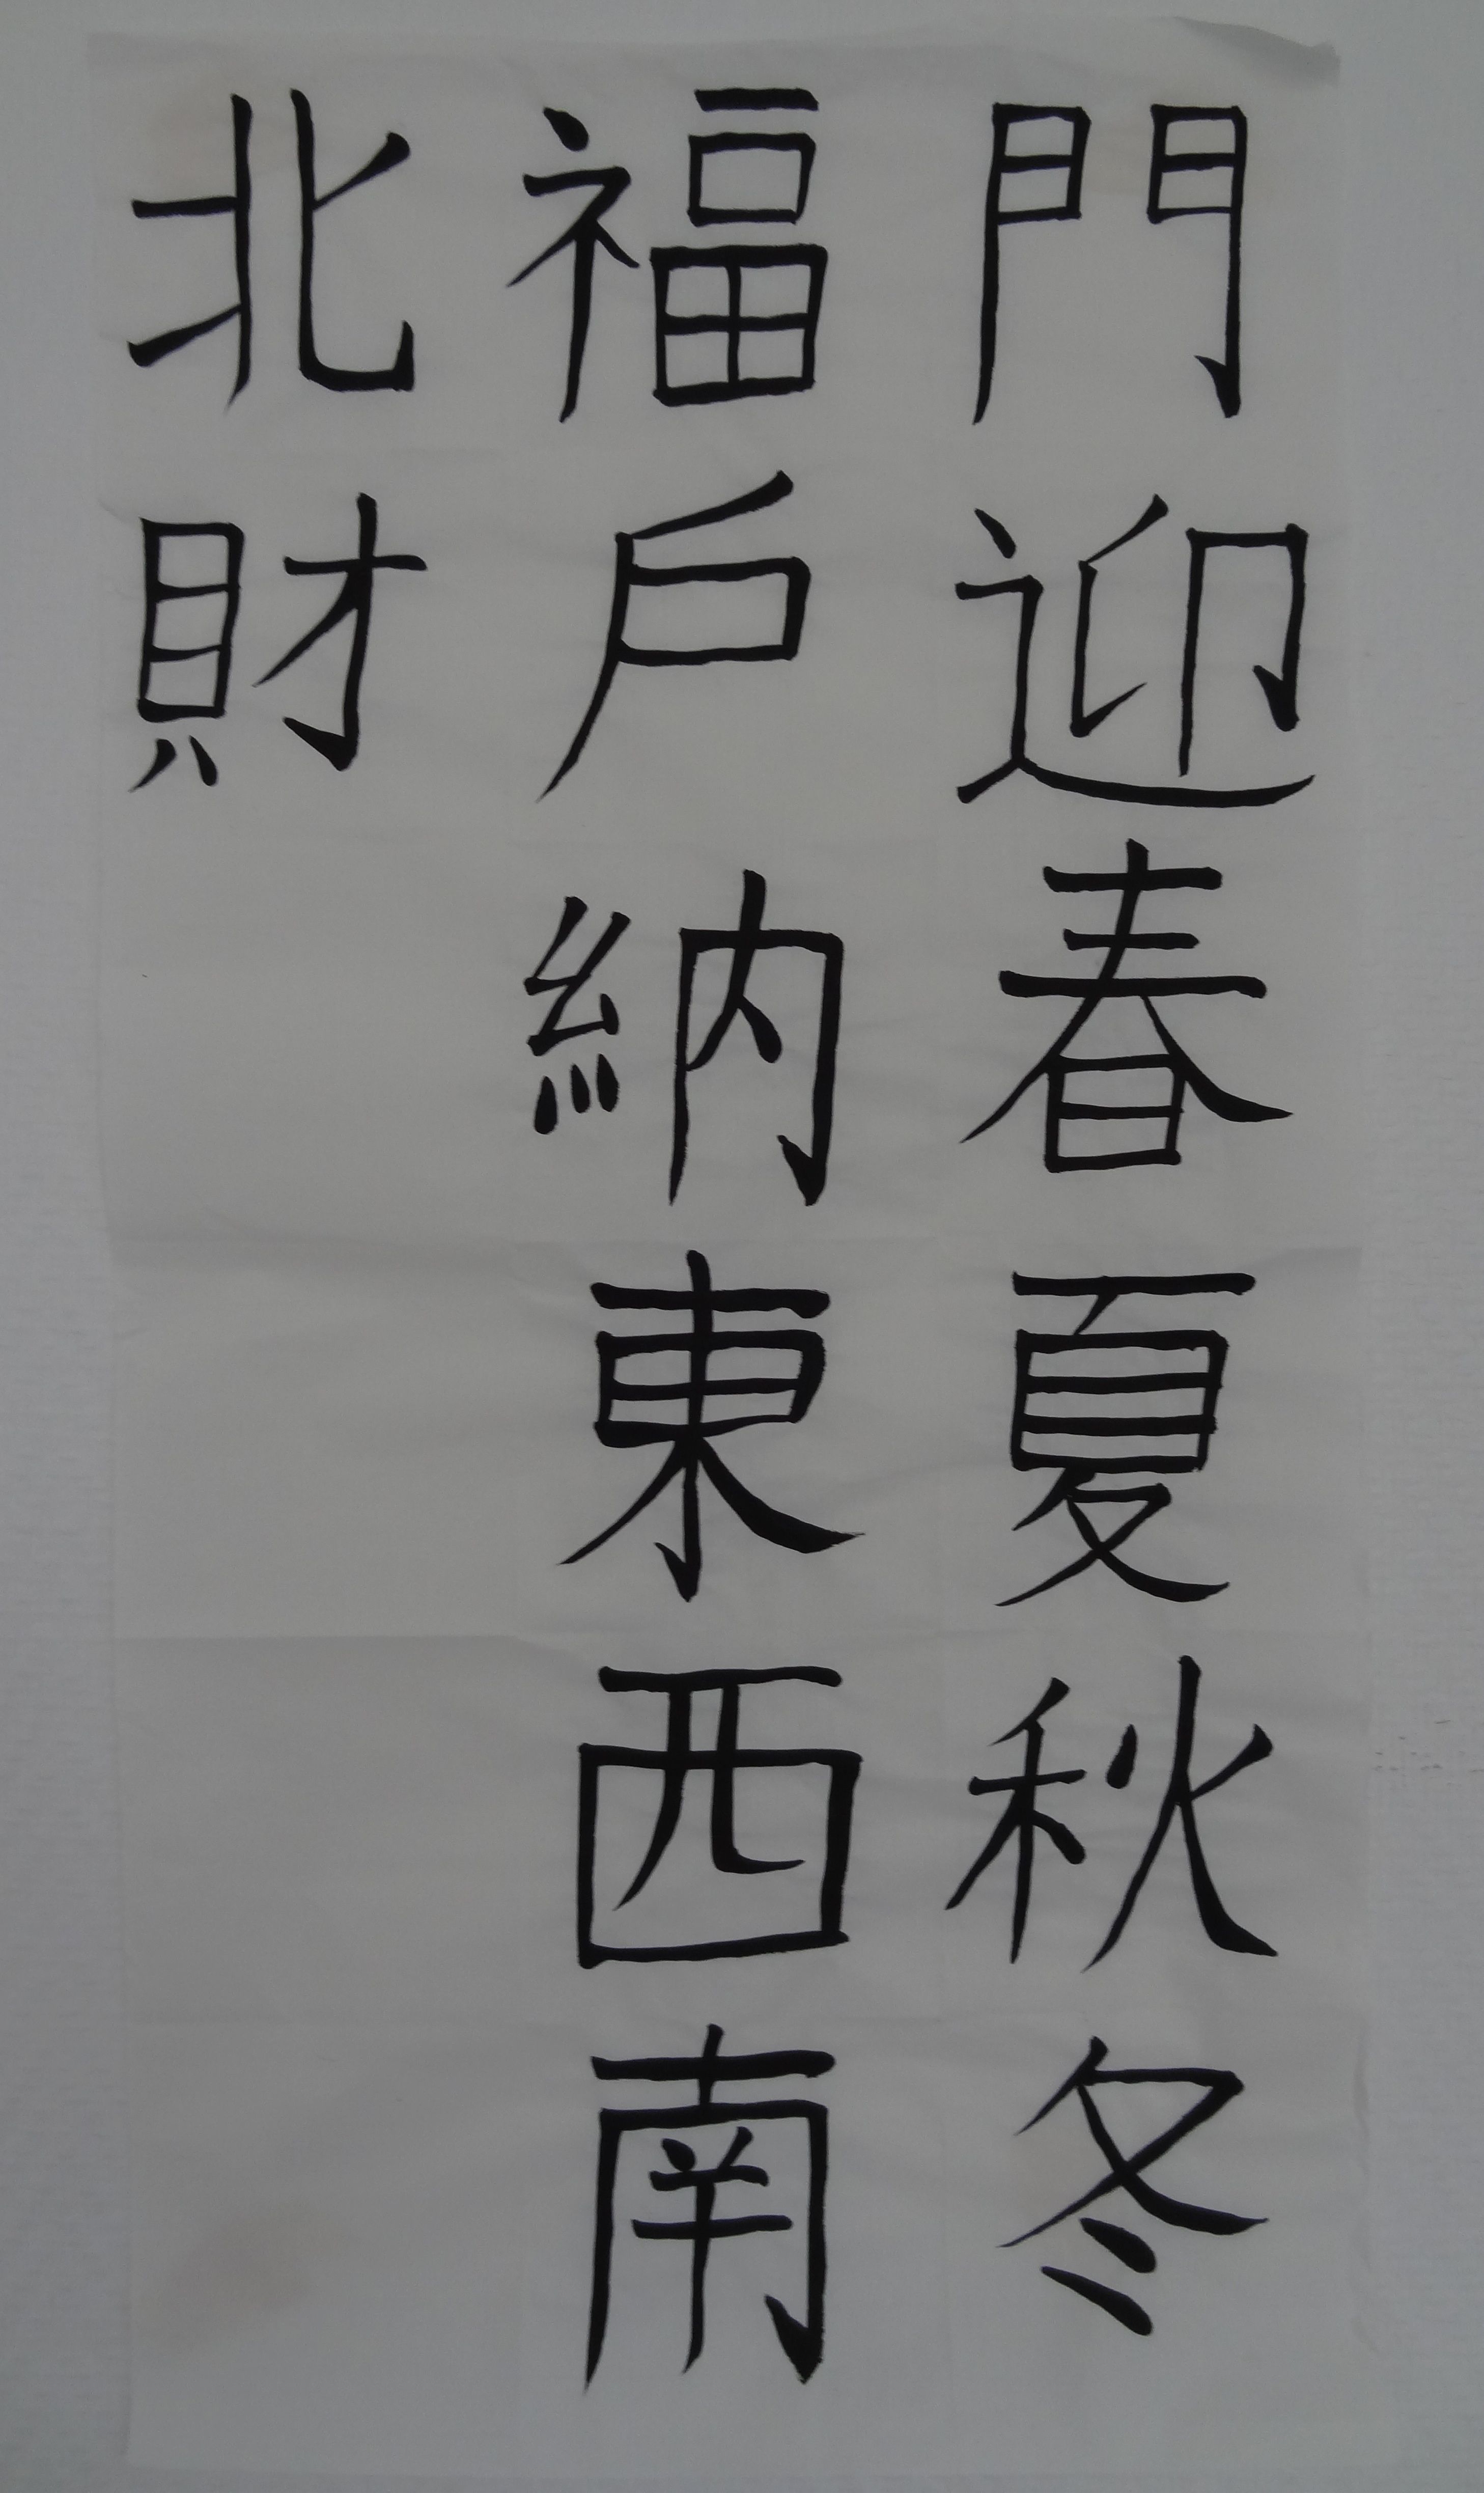 門迎春夏秋冬
福戶納東西南
北財